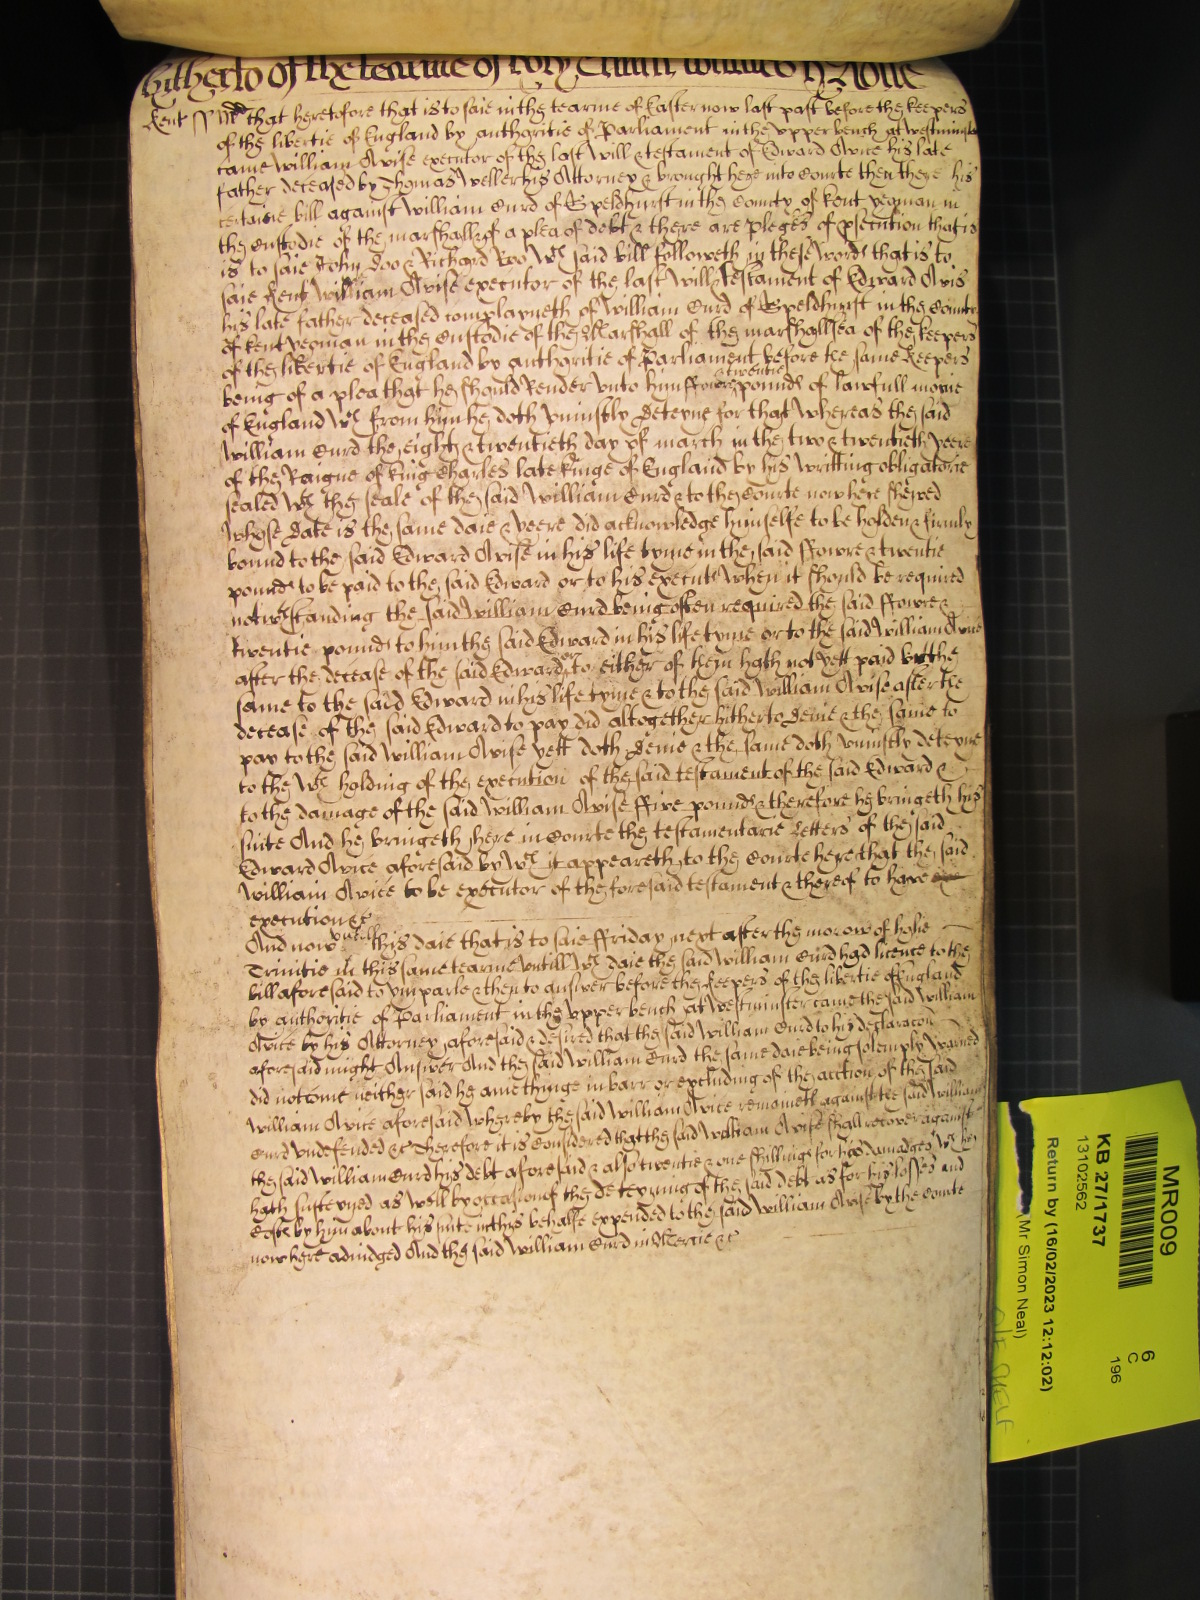 hitherto of the tearme of holy Trinitie witnes H Rolle
Kent ss md that heretofore that is to saie in the tearme of Easter now last past before the keepers
of the libertie of England by authoritie of Parliament in the vpper bench at Westminster
came William Wise executor of the last will & testament of Edward Wice his late
father deceased by Thomas Weller his Attorney & brought here into Courte then there his
certaine bill against William Curd of Speldhurst in the County of Kent yeoman in
the Custodie of the marshall &c of a plea of debt & there are pleges of psecution that is
is to saie John Doo & Richard Roo Wch said bill followeth in these words that is to
saie Kent William Wise executor of the last will & testament of Edward Wis
his late father deceased complayneth of William Curd of Speldhurst in the Countie
of Kent yeoman in the Custodie of the Marshall of the marshallsea of the keepers
of the libertie of England by authoritie of Parliament before the same keepers
being of a plea that he should Render vnto him ffowre & twentie pounds of lawfull monie
of England Wch from him he doth vniustly Deteyne for that Whereas the said
William Curd the eight & twentieth day of march in the two & twentieth yeere
of the Raigne of king Charles late kinge of England by his writting obligatorie
sealed Wth the seale of the said William Curd & to the Courte now here shewed
whose Date is the same daie & yeere did acknowledge himselfe to be holden & firmly
bound to the said Edward Wise in his life tyme in the said ffowre & twentie
pounds to be paid to the said Edward or to his executrs When it should be required
notwthstanding the said William Curd being often required the said ffowre &
twentie pounds to him the said Edward in his life tyme or to the said William Wise
after the decease of the said Edward or to either of them hath not yett paid but the
same to the said Edward in his life tyme & to the said William Wise after the
decease of the said Edward to pay did altogether hitherto Denie & the same to
pay to the said William Wise yett doth Denie & the same doth vniustly deteyne
to the Wth holding of the execution of the said testament of the said Edward &
to the damage of the said William Wise ffive pounds & therefore he bringeth his
suite And he bringeth here in Courte the testamentarie Letters of the said
Edward Wice aforesaid by Wch it appeareth to the Courte here that the said
William Wice to be executor of the foresaid testament & thereof to have
execution &c
And now vntill this daie that is to saie ffriday next after the morow of holie
Trinitie in this same tearme vntill Wch daie the said William Curd had licence to the
bill aforesaid to ymparle & then to answer before the keepers of the libertie of England
by authoritie of Parliament in the vpper bench at Westminster came the said William
Wice by his Attorney aforesaid & desired that the said William Curd to his declaracon
aforesaid might Answer And the said William Curd the same daie being solemply warned
did not come neither said he aniethinge in barr or excluding of the acction of the said
William Wice aforesaid whereby the said William Wice remaineth against the said William
Curd vndefended &c Therefore it is Considered that the said William Wise shall recover against
the said William Curd his debt aforesaid & also twentie & one shillings for his damadges Wch he
hath susteyned as well by occasion of the deteyning of the said debt as for his losses and
Costs by him about his suite in this behalfe expended to the said William Wise by the Courte
now here adiudged And the said William Curd in Mercie &c
MR009
6
C
196
KB 27/1737
13102562
Return by (16/02/2023 12:12:02)
Mr Simon Neal)
O/F SHELF